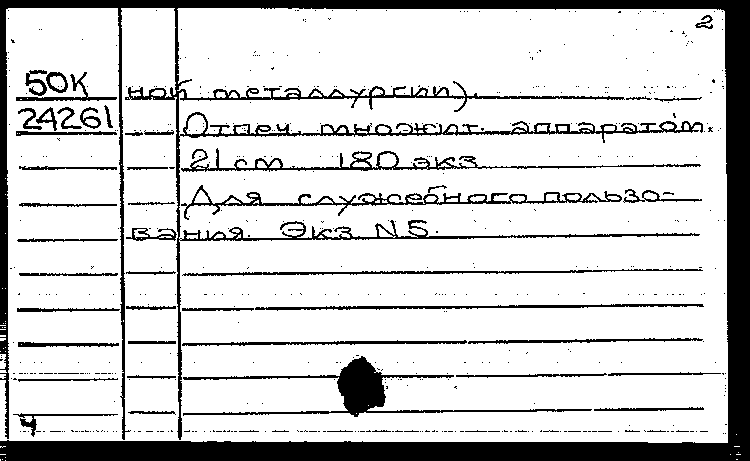 2
50К ной металлургии).
24261 Отпеч. множит. аппаратом.
21 см 180 экз
Для служебного пользо-
вания. Экз N5.
4